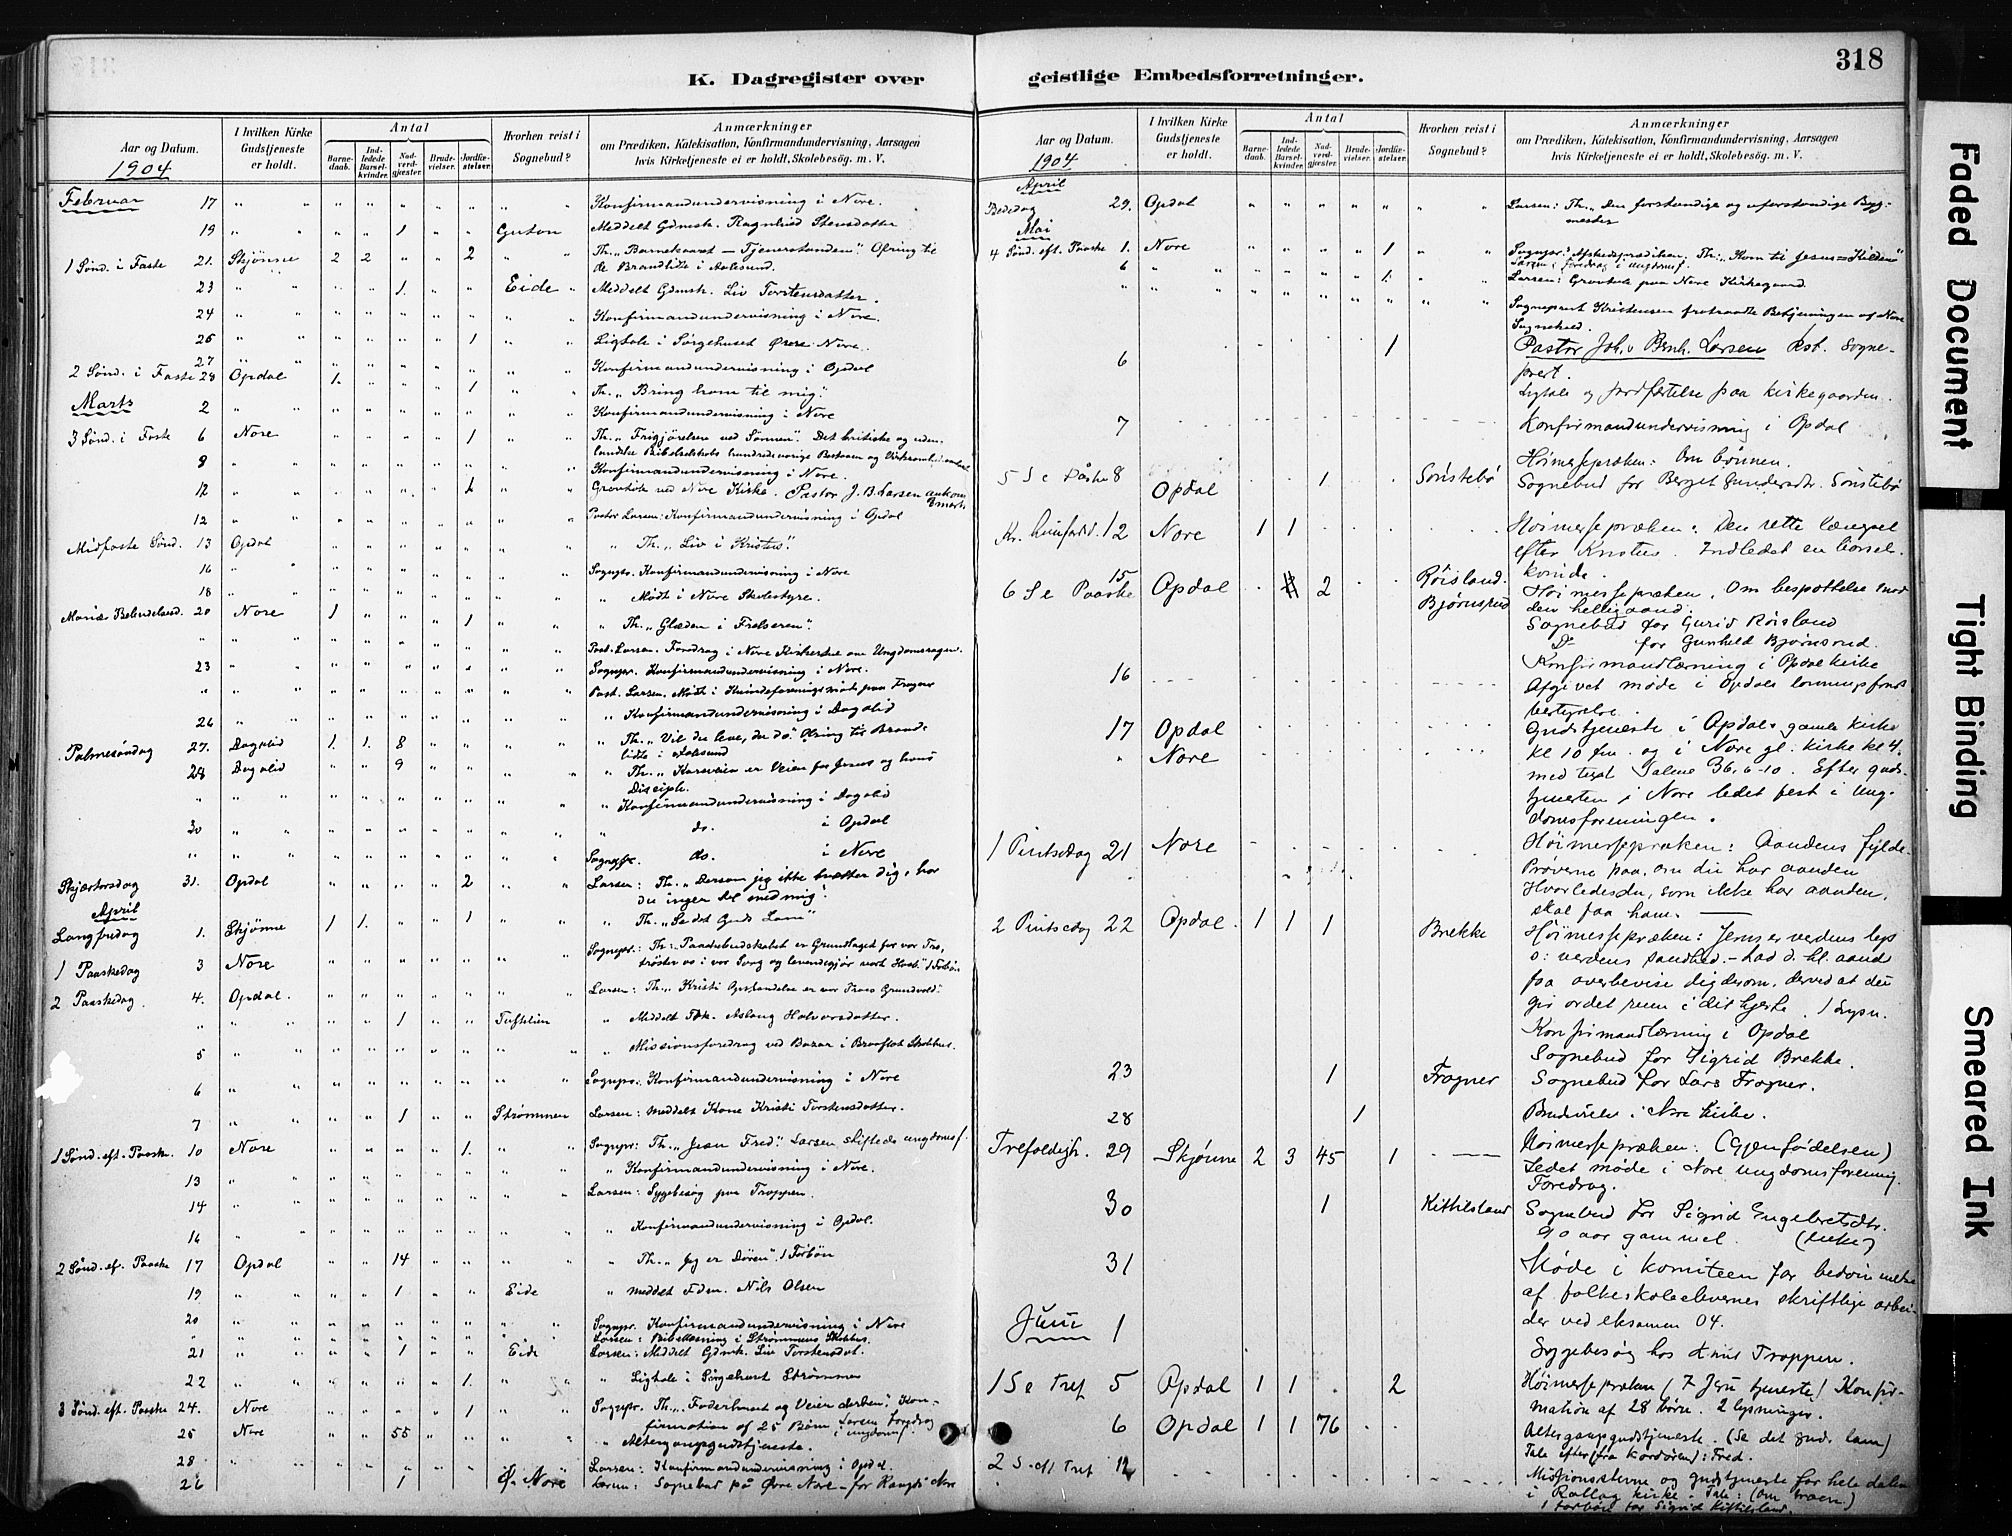 318
K. Dagregister over
geistlige Embedsforretninger.
Aar og Datum.
1904
I hvilken Kirke Gudstjeneste er holdt.
Antal
Barnedaab.
Indledede Barselkvinder.
Nadverdgjæster.
Brudevielser.
Jordfæstelser.
Hvorhen reist i Sognebud?
Anmærkninger
om Prædiken, Katekisation, Konfirmandundervisning, Aarsagen
hvis Kirketjeneste ei er holdt, Skolebesøg. m. V.
Februar 17 Konfirmandundervisning i Nore.
19 1 Meddelt Gdmsk. Ragnhild Stensdatter
1 Sønd. i Faste 21. Skjønne 2 2 2 Th. "Barnekaaret - Tjenerstanden". Ofring til
de Brandlidte i Aalesund.
23 1. Eide Meddelt Gdmsk. Liv Torstensdatter.
24 Konfirmandundervisning i Nore.
25 1 Ligtale i Sørgehuset Øvre Nore.
27 Konfirmandundervisning i Opdal
2 Sønd. i Faste 28 Opdal 1. 1 Th. "Bring ham til mig."
Marts 2 Konfirmandundervisning i Nore
3 Sønd. i Faste 6 Nore 1 Th. "Frigjørelsen ved Sønnen". Det britiske og uden-
landske Bibelselskabs hundredeaarige Bestaaen og
9 Konfirmandundervisning i Nore.
12 1 Gravtale ved Nore Kirke. Pastor J. B. Larsen ankom
12 Pastor Larsen: Konfirmandundervisning i Opdal
Midfaste Sønd. 13 Opdal Th. "Liv i Kristus".
16 Sognepr. Konfirmandundervisning i Nore
18 Mødt i Nore Skolestyre.
Mariæ Bebudelsesd. 20 Nore 1 1 Th. "Glæden i Frelseren".
Past. Larsen. Foredrag i Nore Kirke om Ungdomssagen.
23 Sognepr. Konfirmandundervisning i Nore.
Past. Larsen. Mødt i Kvindeforeningsmøde paa Frogner
26 Konfirmandundervisning i Dagalid
Palmesøndag 27. Dagalid 1. 1. 8 Th. "Vil du leve, du dø". Ofring til Brand-
lidte i Aalesund
28 Dagalid 9 Th. "Korsveien er Veien for Jesus og hans
Disciple.
Konfirmandundervisning i Dagalid
30 do. i Opdal
Sognepr. do. i Nore
Skjærtorsdag 31. Opdal 2 Larsen: Th. "Dersom jeg ikke tvætter dig, har
du ingen del med mig".
April
Langfredag 1. Skjønne 1 1. 1 Th. "Se det Guds Lam"
1 Paaskedag 3 Nore Sognepr.: Th. "Paaskebudskabet er Grundlaget for vor Tro,
trøster os i vor Sorg og levendegjør vort Haab." 1 Forbøn
2 Paaskedag 4. Opdal. Larsen: Th. "Kristi Opstandelse er vor Troes Grundvold".
1 Tuftelien Meddelt Aslaug Halvorsdatter.
5 Missionsforedrag ved Bazar i Skolehus.
6 Sognepr.: Konfirmandundervisning i Nore
7 1 Strømmen Larsen: Meddelt Kone Kristi Torstensdatter.
1 Sønd. eft. Paaske. 10 Nore 1. Sognepr: Th. "Jesu Fred". Larsen stiftede ungdomsf.
Konfirmandundervisning i Nore.
13
14 Larsen: Sygebesøg paa Troppen.
16 Konfirmandundervisning i Opdal.
2 Sønd. ef. Paaske 17 Opdal 14 Th. "Jeg er Døren". 1 Forbøn
19 1 Eide meddelt Fdm. Nils Olsen
20 Sognepr. Konfirmandundervisning i Nore
Larsen: Bibellæsning i Strømmens Skolehus.
21 1 Eide Larsen: Meddelt Gdmk. Liv Torstensdat.
22 1. Ligtale i Sørgehuset Strømmen
3 Sønd. eft. Paaske 24. Nore 1 Sognepr. Th. "Faderhuset og Veien derhen". Kon-
firmation af 25 Børn Larsen foredrag i ungdomsf.
25 Nore 55 Altergangsgudstjeneste.
28 Larsen: Konfirmandundervisning i Opdal.
26 1 Ø. Nore Larsen: Sognebud på Øvre Nore - for Nore
Aar og Datum.
1904
I hvilken Kirke Gudstjeneste er holdt.
Antal
Barnedaab.
Indledede Barselkvinder.
Nadverdgjæster.
Brudevielser.
Jordfæstelser.
Hvorhen reist i Sognebud?
Anmærkninger
om Prædiken, Katekisation, Konfirmandundervisning, Aarsagen
hvis Kirketjeneste ei er holdt, Skolebesøg. m. V.
April
Bededag 29. Opdal Larsen: Th. "Den forstandige og uforstandige Byg-
mester
Mai
4 Sønd. eft. Paaske 1. Nore 1 Sognepr.: Afskedsprædiken. Th.: "Kom til Jesus - Kilden"
Larsen: foredrag i ungdomsf.
6 1. Larsen: Gravtale paa Nore Kirkegaard.
Sogneprest Kristensen fratraadte Betjeningen af Nore
Sognekald.
6 1 Pastor Joh. Bernh. Larsen kst. Sogne-
prest.
Ligtale og jordfæstelse paa kirkegaarden.
7 Konfirmandundervisning i Opdal
5 S e Påske 8 Opdal 1 Sønstebø Høimesse præken: Om bønnen.
Sognebud for Berget Gundersdtr. Sønstebö
Kr. himfartsd. 12 Nore 1 1 Høimessepræken: Den rette længsel
efter Kristus. Indledet en barsel-
konide.
6 S e Paaske 15 Opdal 2 Røisland. Høimessepræken. Om bespottelse mod
Bjørnsrud den helligaand.
Sognebud for Gurid Røisland
Do for Gunhild Bjørnsrud.
16 Konfirmandlærning i Opdal kirke
Afgivet møde i Opdals
bestyrelse.
17 Opdal Gudstjeneste i Opdals gamle kirke
Nore kl 10 fm. og i Nore gl. kirke kl 4.
med text Salme 36, 6-10. Efter guds-
tjenesten i Nore ledet fest i ung-
domsforeningen.
1 Pintsedag 21 Nore Høimessepræken: Aandens fylde.
Prøven paa, om du har aanden
Hvorledes du, som ikke har aanden,
skal faa ham.
2 Pintsedag 22 Opdal. 1 1 1 Brekke Høimessepræken: Jesus er verdens lys
o: verdens sandhed. - Lad d. hl. aand
faa overbevise dig derom, derved at du
gir ordet rum i dit hjerte. 1 lysn.
Konfirmandlærning i Opdal
Sognebud for Sigrid Brekke.
23 1 Frogner Sognebud for Lars Frogner.
28 1 Brudevielse i Nore Kirke.
Trefoldigh. 29 Skjønne 2 3 45 1 Høimesse præken: (Gjenfödelsen)
Ledet møde i Nore ungdomsforening.
Foredrag.
30 1 Kittilsland Sognebud for Sigrid Engebretsdtr.
90 aar gammel.
31 Møde i komiteen for bedømmelse
af folkeskoleelevernes skriftlige arbei-
der ved eksamen 04.
Juni 1 Sygebesøg hos Knut Troppen.
1 S e Tref 5 Opdal 1 1 2 Høimesse præken (7 Jesu tjeneste) Konfir-
mation af 28 børn. 2 lysninger.
6 Opdal 1 1 76 Altergangsgudstjeneste. (Se det guds lam)
Tale efter (fra kordören): Fred.
2 S. eft Tref 12 Missionsstevne og gudstjeneste for hele dalen
i Rollag kirke. Tale: (Om troen)
1 Forbön for Sigrid Kittilsland.
Faded Document
Tight Binding
Smeared Ink